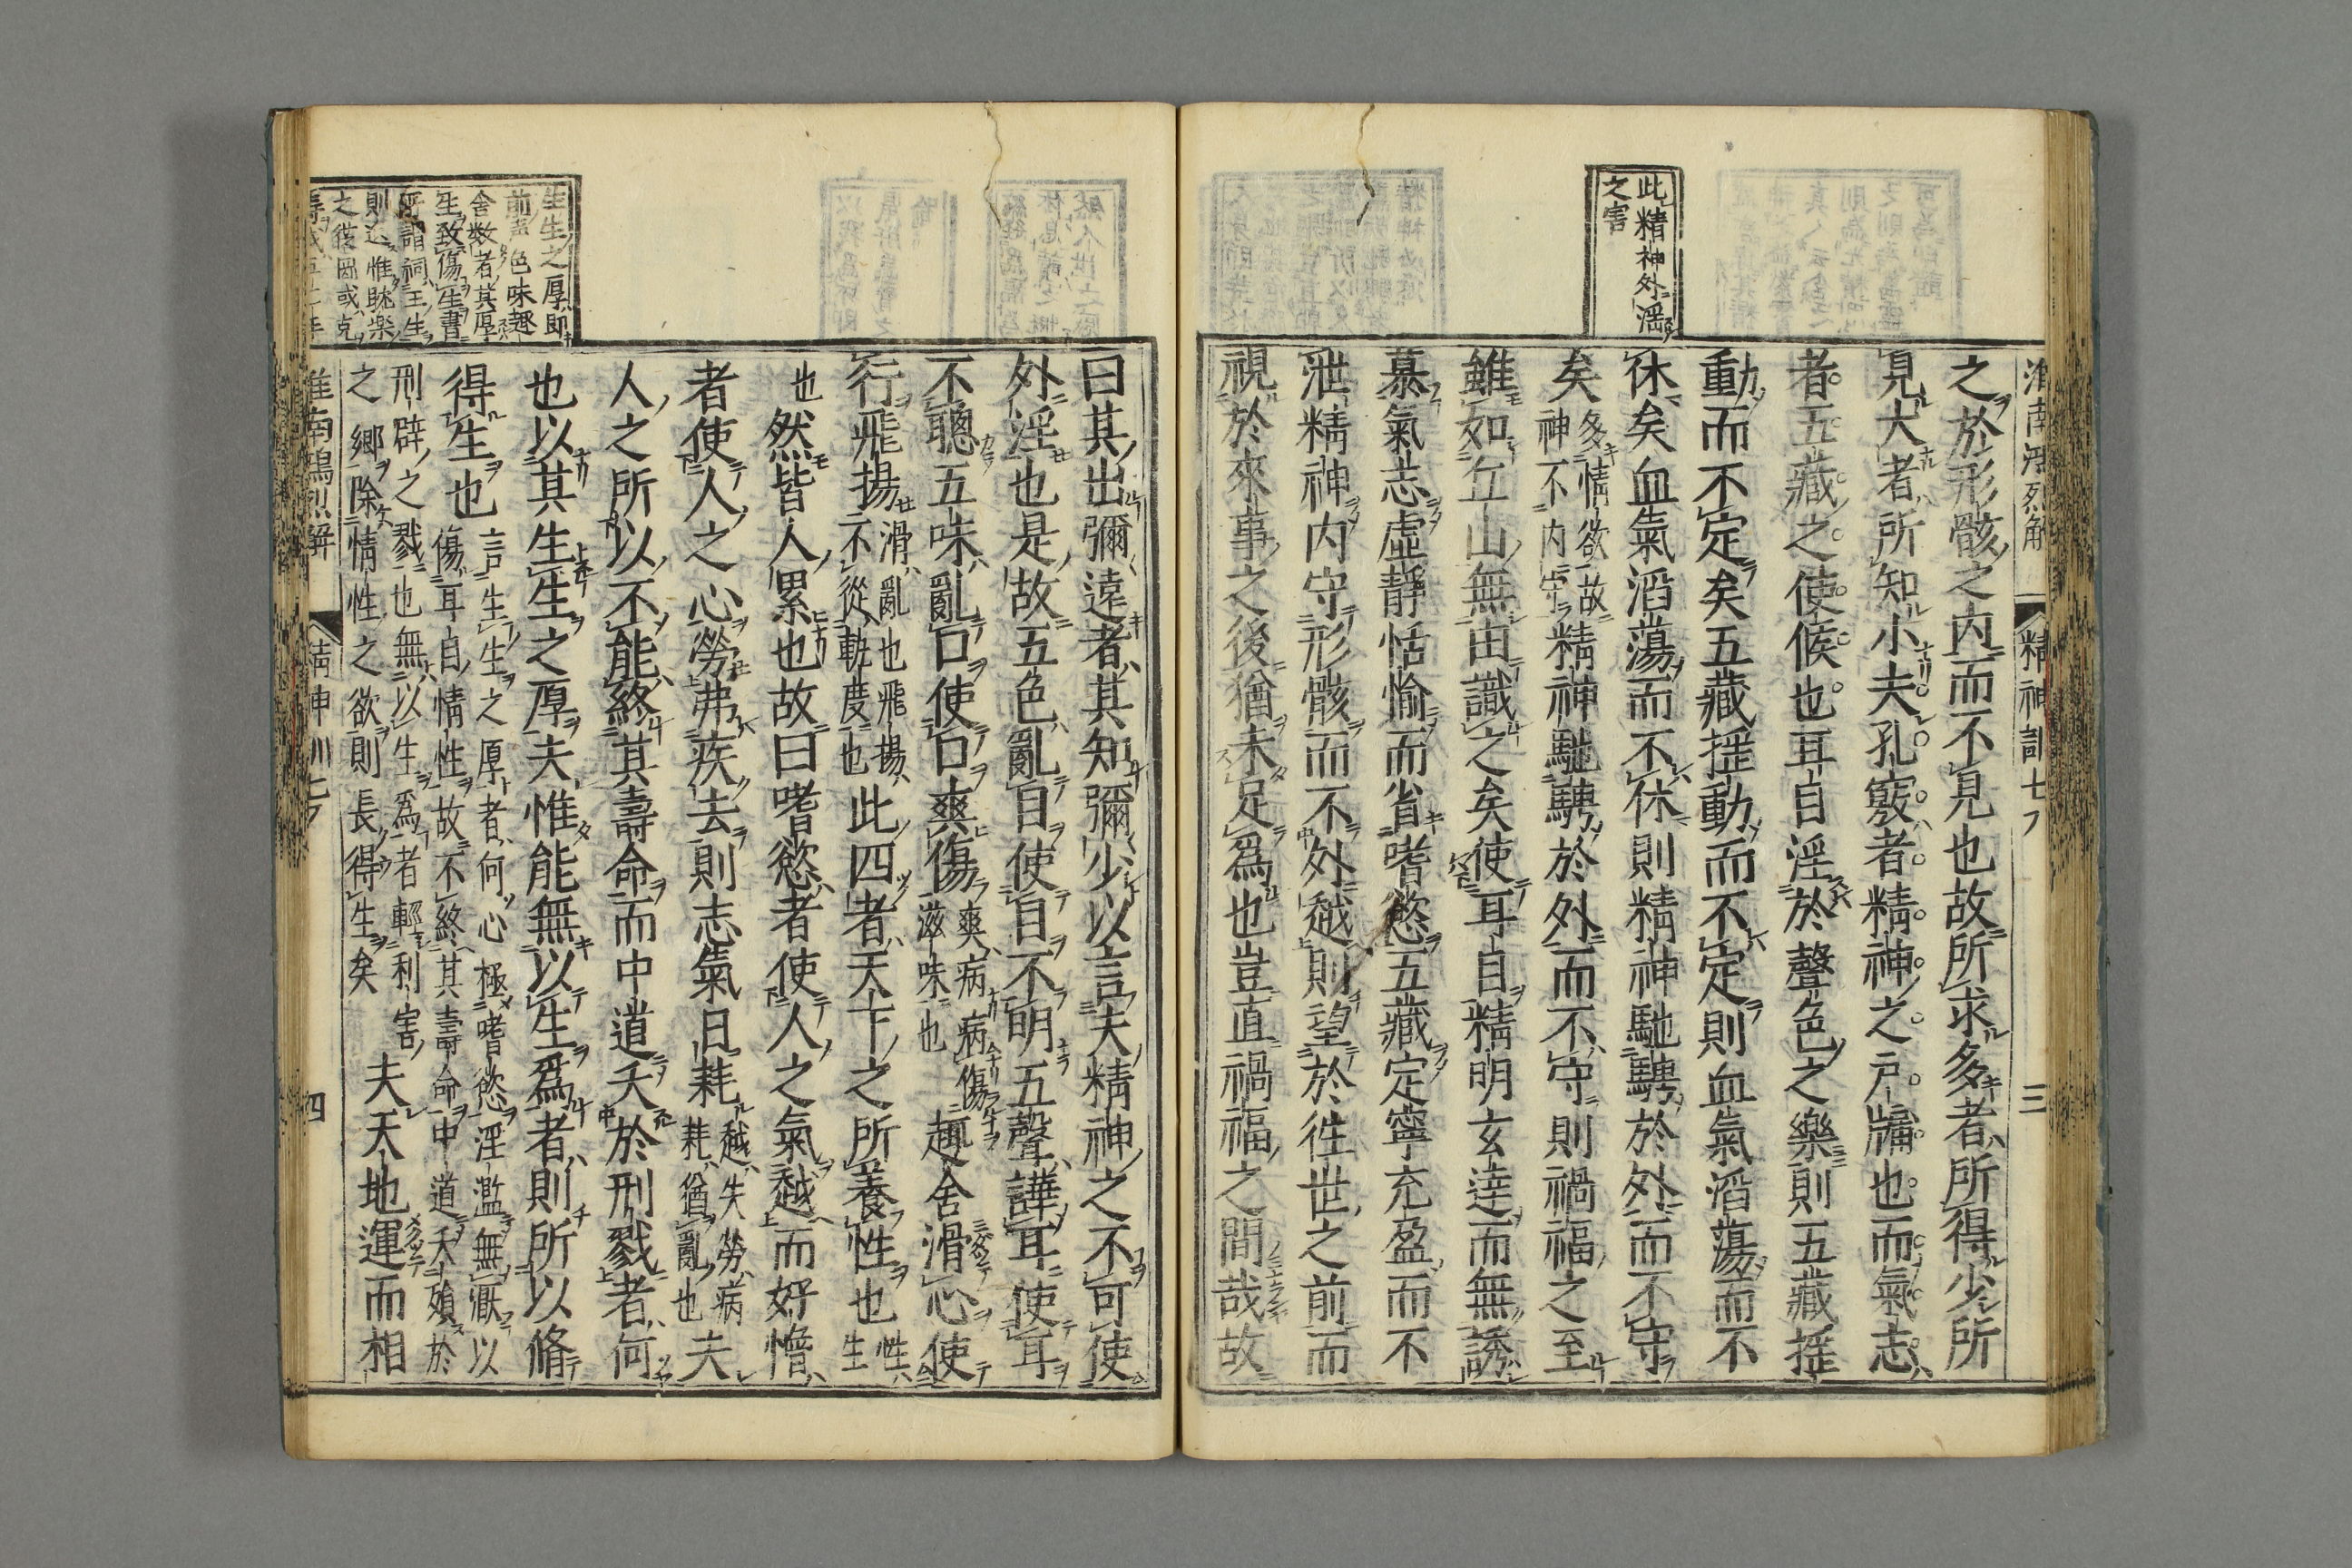 淮南鴻烈解 精神訓七 三
此精神外淫
之害
之於形骸之内而不見也故所求多者所得少所
見大者所知小夫孔竅者精神之戸牖也而氣志
者五藏之使候也耳目淫於聲色之樂則五藏揺
動而不定矣五藏揺動而不定則血氣滔蕩而不
休矣血氣滔蕩而不休則精神馳騁於外而不守
矣
多情欲故
神不内守
精神馳騁於外而不守則禍福之至
雖如丘山無由識之矣使耳目精明玄達而無誘
慕氣志虚靜恬愉而省嗜慾五藏定寧充盈而不
泄精神内守形骸而不外越則望於徃世之前而
視於來事之後猶未足爲也豈直禍福之間哉故
曰其出彌遠者其知彌少以言夫精神之不可使
外淫也是故五色亂目使目不明五聲譁耳使耳
不聰五味亂口使口爽傷
爽病病傷
滋味也
趣舍滑心使
行飛揚
滑亂也飛揚
不從軌度也
此四者天下之所養性也
性
生
也
然皆人累也故曰嗜慾者使人之氣越而好憎
者使人之心勞弗疾去則志氣日耗
越失勞病
耗猶亂也
夫
人之所以不能終其壽命而中道夭於刑戮者何
也以其生生之厚夫惟能無以生爲者則所以脩
得生也
言生生之厚者何心極嗜慾淫濫無厭以
傷耳目情性故不終其壽命中道夭殞於
刑辟之戮也無以生爲者輕利害
之鄉除情性之欲則長得生矣
夫天地運而相
生生之厚即
前 色味趣
舍数者其厚
生致傷生書
所謂 王生
則逸惟耽樂
之從罔或克
淮南鴻烈解 精神訓七 四